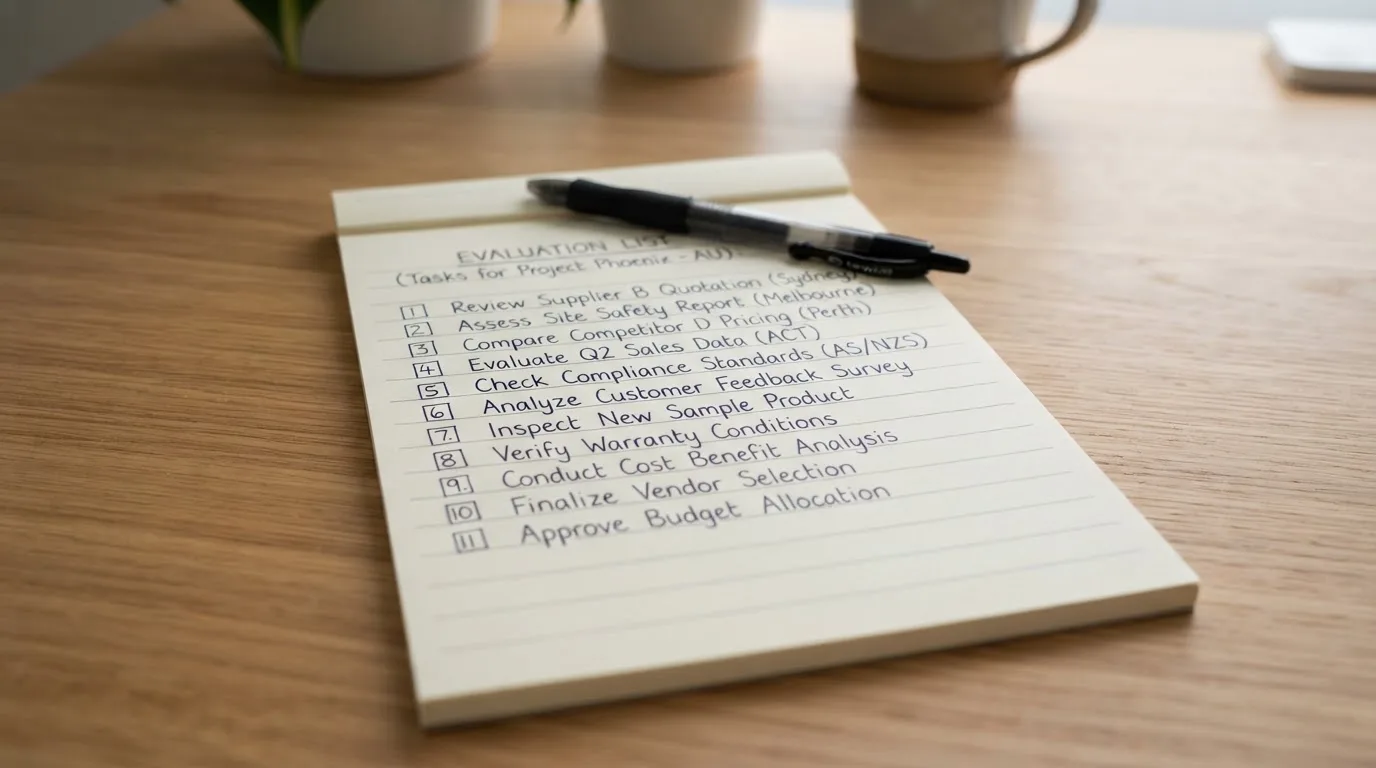 EVALUATION LIST
(Tasks for Project Phoenix - AU)
1 Review Supplier B Quotation (Sydney)
2 Assess Site Safety Report (Melbourne)
3 Compare Competitor D Pricing (Perth)
4 Evaluate Q2 Sales Data (ACT)
5 Check Compliance Standards (AS/NZS)
6 Analyze Customer Feedback Survey
7. Inspect New Sample Product
8 Verify Warranty Conditions
9. Conduct Cost Benefit Analysis
10 Finalize Vendor Selection
11 Approve Budget Allocation